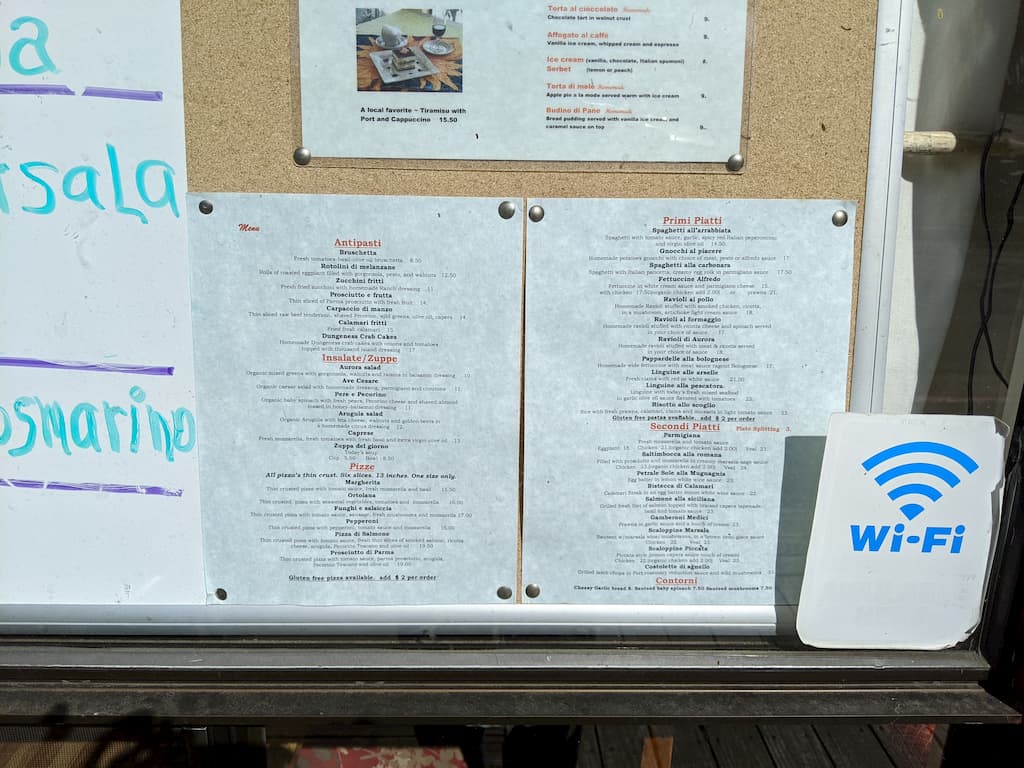 a
rsala
osmarino
A local favorite ~ Tiramisu with
Port and Cappuccino 15.50
Torta al cioccolato Homemade
Chocolate tart in walnut crust 9.
Affogato al caffè
Vanilla ice cream, whipped cream and espresso 9.
Ice cream (vanilla, chocolate, Italian spumoni) 8.
Sorbet (lemon or peach)
Torta di mele Homemade
Apple pie a la mode served warm with ice cream 9.
Budino di Pane Homemade
Bread pudding served with vanilla ice cream and
caramel sauce on top 9..
Menu
Antipasti
Bruschetta
Fresh tomatoes basil olive oil bruschetta 8.50
Rotolini di melanzane
Rolls of roasted eggplant filled with gorgonzola, pesto, and walnuts 12.50
Zucchini fritti
Fresh fried zucchini with homemade Ranch dressing .11
Prosciutto e frutta
Thin sliced of Parma prosciutto with fresh fruit 14.
Carpaccio di manzo
Thin sliced raw beef tenderloin, shaved Pecorino, wild greens, olive oil, capers 14.
Calamari fritti
Fried fresh calamari 15.
Dungeness Crab Cakes
Homemade Dungeness crab cakes with onions and tomatoes
topped with thousand island dressing 17
Insalate/Zuppe
Aurora salad
Organic mixed greens with gorgonzola, walnuts and raisins in balsamic dressing 10
Ave Cesare
Organic caesar salad with homemade dressing, parmigiano and croutons 11.
Pere e Pecorino
Organic baby spinach with fresh pears, Pecorino cheese and shaved almond
tossed in honey-balsamic dressing 11
Arugula salad
Organic Arugula with feta cheese, walnuts and golden beets in
a homemade citrus dressing 12.
Caprese
Fresh mozzarella, fresh tomatoes with fresh basil and extra virgin olive oil 13
Zuppa del giorno
Today's soup
Cup 5.50 Bowl 8.50
Pizze
All pizza's thin crust. Six slices. 13 inches. One size only.
Margherita
Thin crusted pizza with tomato sauce, fresh mozzarella and basil 15.50
Ortolana
Thin crusted pizza with seasonal vegetables, tomatoes and mozzarella 16.00
Funghi e salsiccia
Thin crusted pizza with tomato sauce, sausage, fresh mushrooms and mozzarella 17.00
Pepperoni
Thin crusted pizza with pepperoni, tomato sauce and mozzarella 16.00
Pizza di Salmone
Thin crusted pizza with tomato sauce, fresh thin slices of smoked salmon, ricotta
cheese, arugula, Pecorino Toscano and olive oil 19.50
Prosciutto di Parma
Thin crusted pizza with tomato sauce, parma prosciutto, arugula,
Pecorino Toscano and olive oil 19.00
Gluten free pizza available. add $ 2 per order
Primi Piatti
Spaghetti all'arrabbiata
Spaghetti with tomato sauce, garlic, spicy red Italian peperoncino
and virgin olive oil 14.50
Gnocchi al piacere
Homemade potatoes gnocchi with choice of meat, pesto or alfredo sauce 17
Spaghetti alla carbonara
Spaghetti with Italian pancetta, creamy egg yolk in parmigiano sauce 17.50
Fettuccine Alfredo
Fettuccine in white cream sauce and parmigiano cheese 15.
with chicken 17.50(organic chicken add 2.00) or prawns 21.
Ravioli al pollo
Homemade Ravioli stuffed with smoked chicken, ricotta,
in a mushroom, artichoke light cream sauce 18.
Ravioli al formaggio
Homemade ravioli stuffed with ricotta cheese and spinach served
in your choice of sauce 17.
Ravioli di Aurora
Homemade ravioli stuffed with meat & ricotta served
in your choice of sauce 18.
Pappardelle alla bolognese
Homemade wide fettuccine with meat sauce ragout Bolognese 17.
Linguine alle arselle
Fresh clams with red or white sauce 21.50
Linguine alla pescatora
Linguine with today's fresh mixed seafood
in garlic olive oil sauce flavored with tomatoes 23.
Risotto allo scoglio
Rice with fresh prawns, calamari, clams and mussels in light tomato sauce 23.
Gluten free pastas available. add $ 2 per order
Secondi Piatti Plate Splitting 3.
Parmigiana
Fresh mozzarella and tomato sauce
Eggplant 18. Chicken 21.(organic chicken add 2.00) Veal 23.
Saltimbocca alla romana
Filled with prosciutto and mozzarella in creamy marsala-sage sauce
Chicken 22.(organic chicken add 2.00) Veal 24.
Petrale Sole alla Mugnagnia
Egg batter in lemon white wine sauce 23.
Bistecca di Calamari
Calamari Steak in an egg batter lemon white wine sauce 22.
Salmone alla siciliana
Grilled fresh filet of salmon topped with braised capers tapenade
basil and tomato sauce 23.
Gamberoni Medici
Prawns in garlic sauce and a touch of cream 23.
Scaloppine Marsala
Sauteed w/marsala wine, mushrooms, in a brown demi glace sauce
Chicken 22. Veal 23.
Scaloppine Piccata
Piccata style lemon capers sauce touch of cream
Chicken 21.(organic chicken add 2.00) Veal 23.
Costolette di agnello
Grilled lamb chops in Port rosemary reduction sauce and wild mushrooms
Contorni
Cheesy Garlic bread 8. Sauteed baby spinach 7.50 Sauteed mushrooms 7.50
Wi-Fi